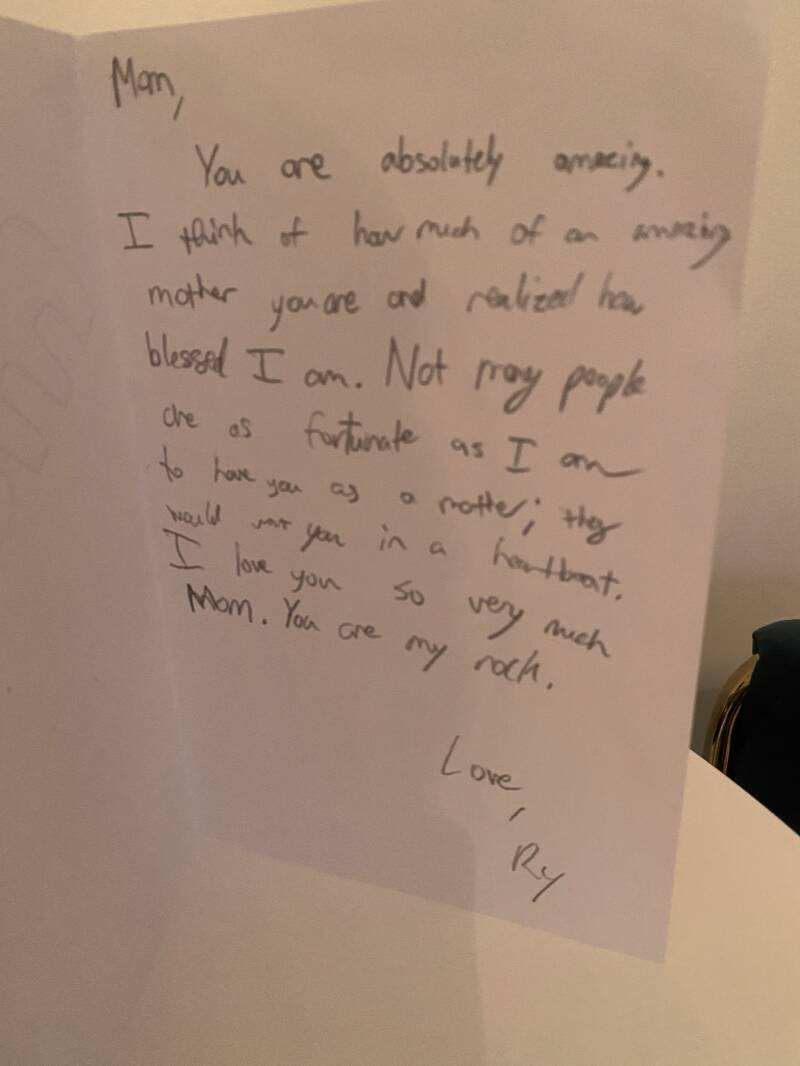 Mom,
You are absolutely amazing.
I think of how much of an amazing
mother you are and realized how
blessed I am. Not many people
are as fortunate as I am
to have you as a mother; they
would want you in a heartbeat.
I love you so very much
Mom. You are my rock.
Love,
Ry